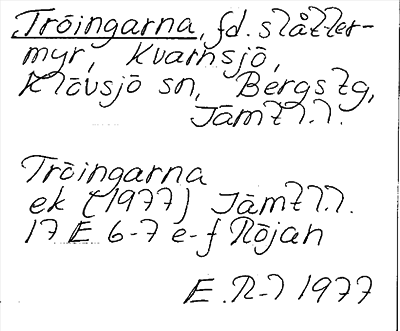 Tröingarna, fd. slåtter-
myr, Kvarnsjö,
Klövsjö sn, Bergs tg,
Jämtl.l.
Tröingarna
ek (1977) Jämtl.l.
17 E 6-7 e-f Röjan
E.R-l 1977